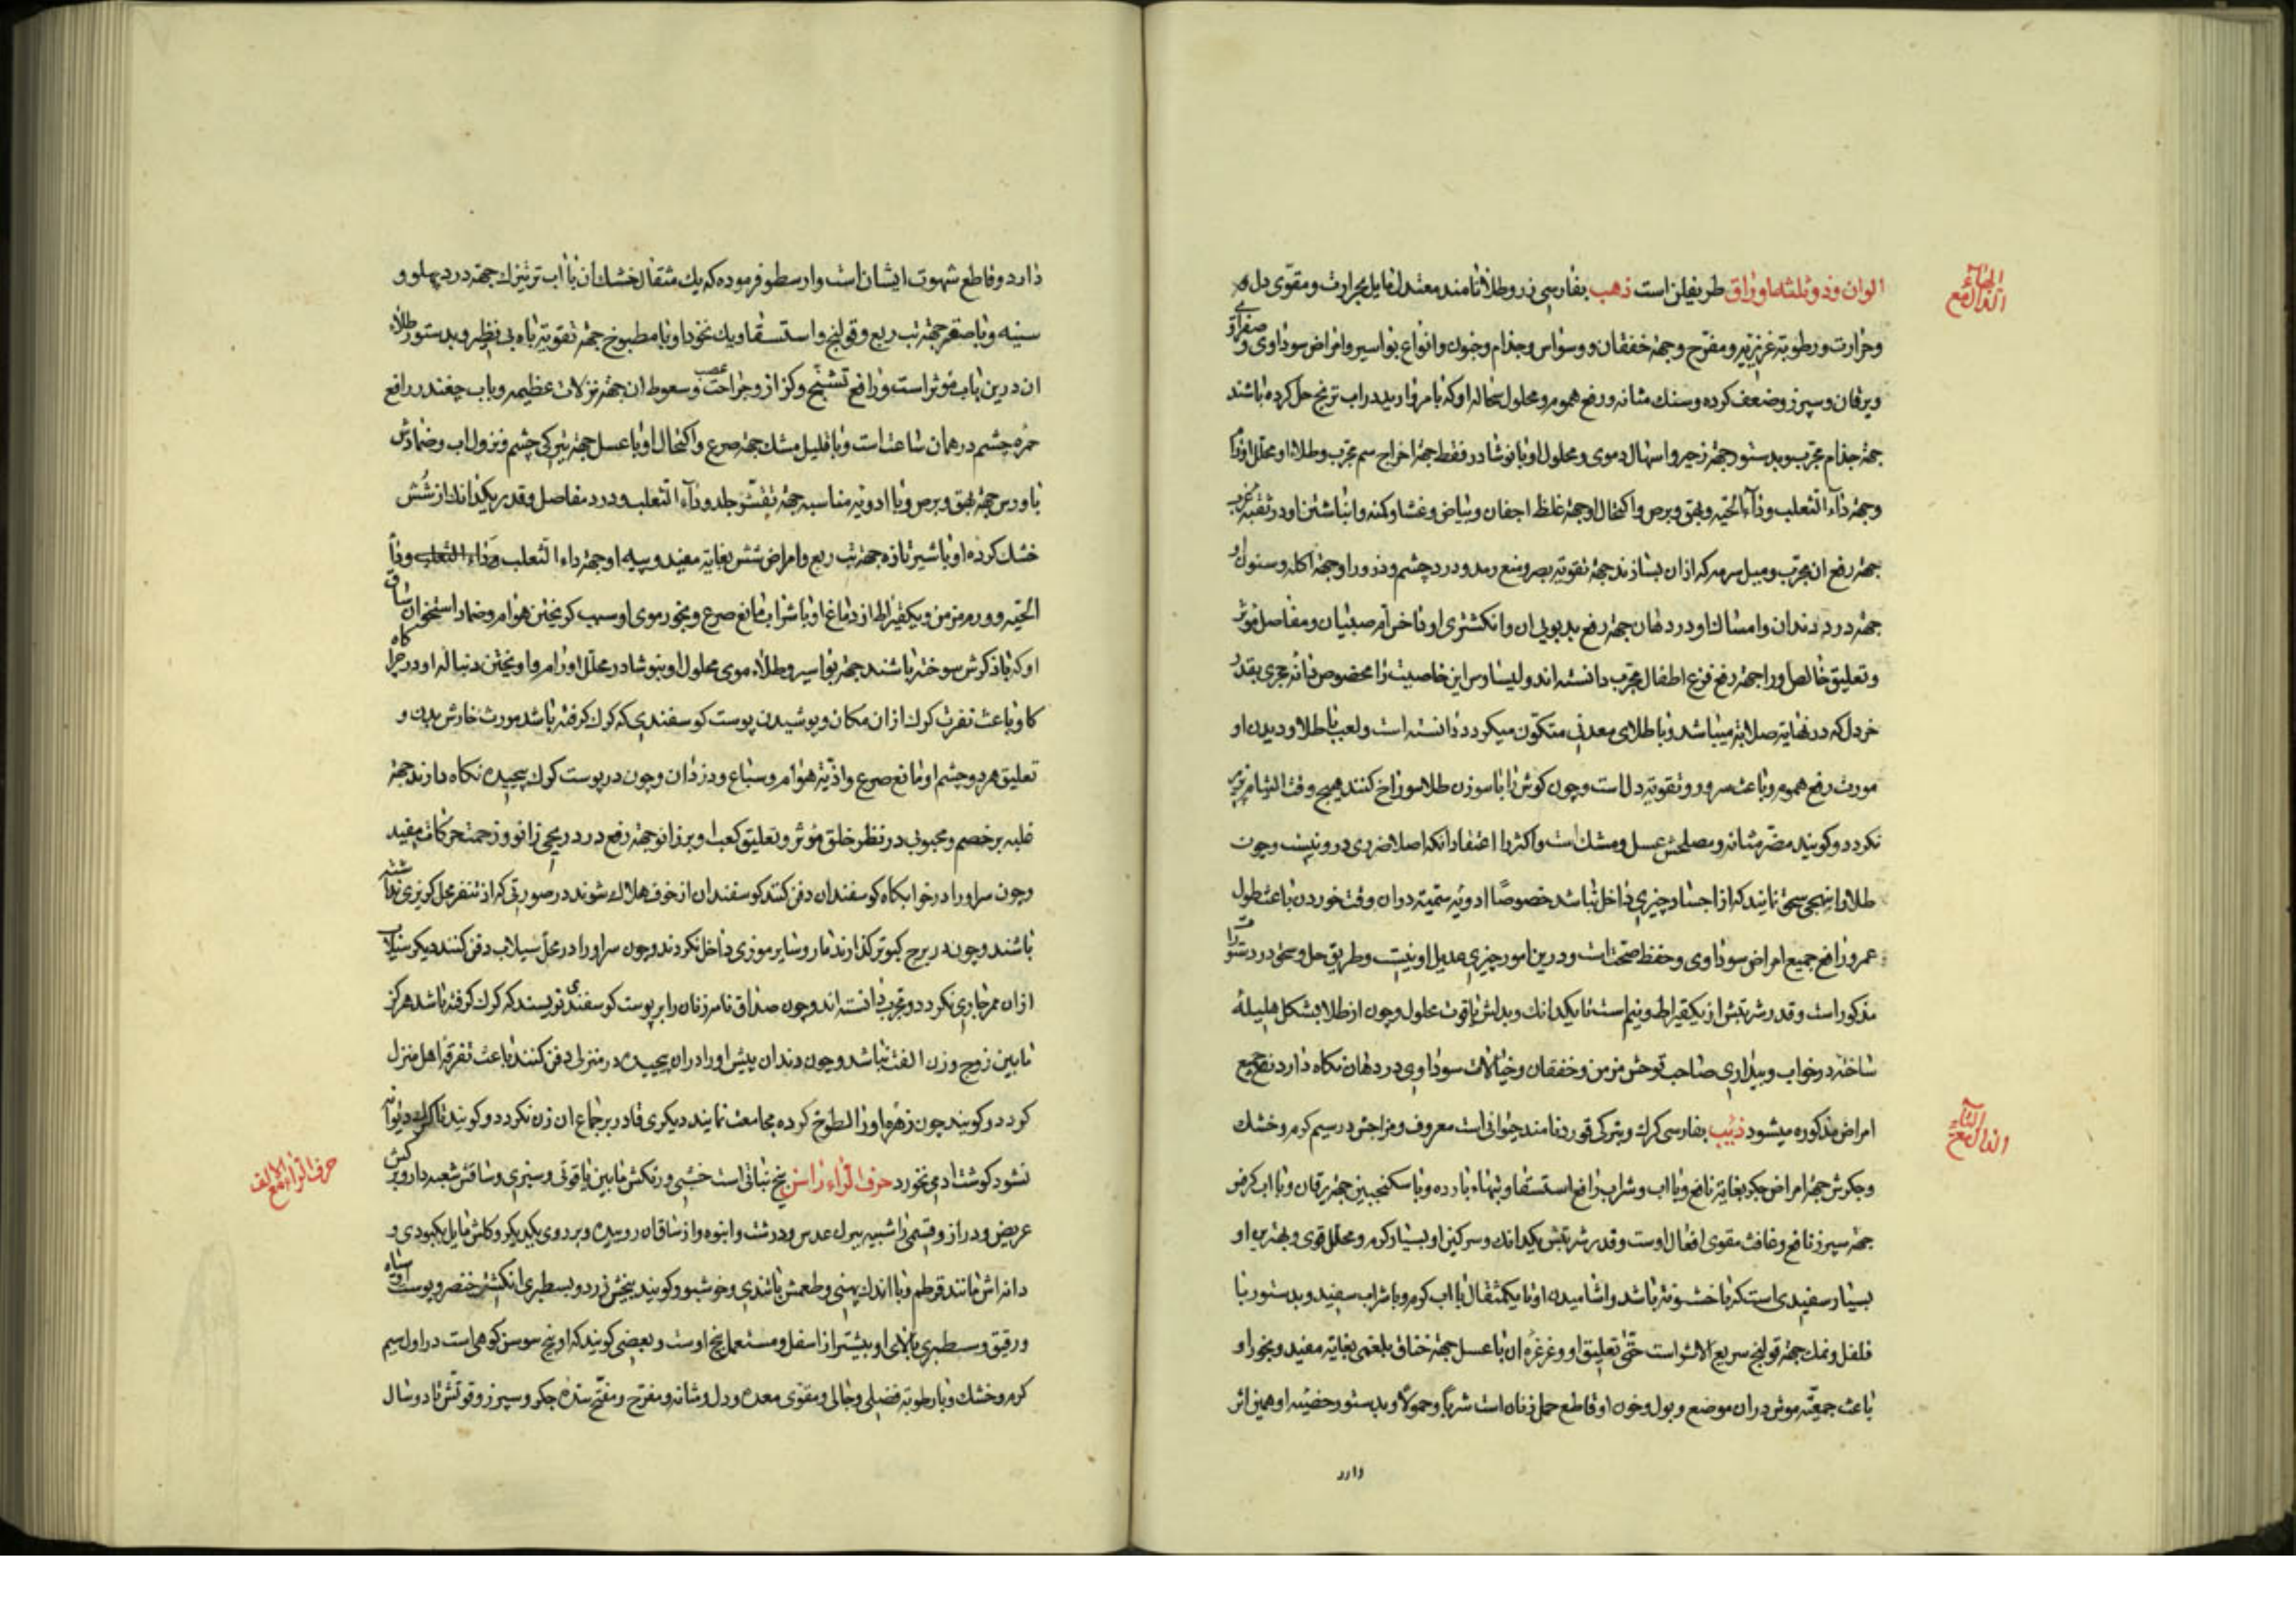 الهاء
الذال مع
الوان و ذو ثلثه اوراق طریفلن است ذهب بفارسی زر و طلا نامند معتدل مایل بحرارت و مقوی دل و
و حرارت و رطوبته غریزیه و مفرح و جهة خفقان و وسواس و جذام و جنون و انواع بواسیر و امراض سوداوی و صفراوی
و یرقان و سپرز و ضعف کرده و سنك مثانه و رفع هموم و محلول سحاله او که با مروارید در اب ترنج حل کرده باشند
جهة جذام مجرب و بدستور جهة زحیر و اسهال دموی و محلول او با نوشادر فقط جهة اخراج سم مجرب و طلاء او محلل اورام
و جهة داء الثعلب و داء الحیه و بهق و برص و اکتحال او جهة غلظ اجفان و بیاض و غشاوکنه و انباشتن او در ثقبه
جهة رفع ان مجرب و میل سرمه که ازان بسازند جهة تقویة بصر و منع رمد و درد چشم و ذرور او جهة اکله و سنون او
جهة درد دندان و امساك او در دهان جهة رفع بدبویی ان و انکشتری او تا خرام صبیان و مفاصل موثر
و تعلیق خالص او را جهة رفع فزع اطفال مجرب دانسته اند و لیساوس این خاصیت را مخصوص دانه حجری بقدر
خردل که در نهایة صلابة میباشد و با طلای معدنی متکون میکردد دانسته است و لعب با طلا و دیدن او
مورث رفع هموم و باعث سرور و تقویة دل است و چون کوش را با سوزن طلا سوراخ کنند هیچ وقت التیام پذیر
نکردد و کویند مضر مثانه و مصلحش عسل و مشك است و اکثر را اعتقاد انکه اصلا ضرری درو نیست و چون
طلا را بنهجی سحق نمایند که از اجساد چیزی داخل نباشد خصوصًا ادویه سمیته دوان وقت خوردن باعث طول
عمر و رافع جمیع امراض سوداوی و حفظ صحت است و درین امور چیزی عدیل او نیست و طریق حل و سحق در دستورات
مذکور است و قدر شربتش از یکقیراط و نیم است تا یکدانك و بدلش یاقوت محلول و چون از طلا بشکل هلیله
ساخته در خواب و بیداری صاحب توحش مزمن و خفقان و خیالات سوداوی در دهان نکاه دارد نفع جمیع
امراض مذکوره میشود ذئب بفارسی کرك و بترکی قورد نامند حیوانی است معروف و مزاجش در سیم کرم و خشك
الیاء
الذال مع
و جکرش جهة امراض جکر بغایة نافع و با اب و شراب رافع استسقا و تبهاء بارده و با سکنجبین جهة یرقان و با اب کرفس
جهة سپرز نافع و غافث مقوی افعال اوست و قدر شربتش یکدانك و سرکین او بسیار کرم و محلل قوی و بهترین او
بسیار سفیدی است که با خشونة باشد و اشامیدن او تا یکمثقال با اب کرم و با شراب سفید و بدستور با
فلفل و نمك جهة قولنج سریع الاثر است حتی تعلیق او و غرغره ان با عسل جهة خناق بلغمی بغایة مفید و بخور او
باعث جمعیت موش در ان موضع و بول و خون او قاطع حمل زنان است شربًا و حمولًا و بدستور خصیه او همین اثر
دارد
دارد و قاطع شهوت ایشان است و ارسطو فرموده که یك مثقال خشك ان با اب ترتیزك جهة درد پهلو و
سینه و با صعتر جهة تب ربع و قولنج و استسقا و یك نخود او با مطبوخ جهة تقویة باه بی نظیر و بدستور طلاء
ان درین باب موثر است و رافع تشنج و کزاز و جراحت عصب و سعوط ان جهة نزلات عظیمه و باب چغندر رافع
حمره چشم در همان ساعت است و با قلیل مشك جهة صرع و اکتحال او با عسل جهة تیرکی چشم و نزول اب و ضمادش
باورس جهة بهق و برص و با ادویه مناسبه جهة تقشر جلد و داء الثعلب و درد مفاصل و قدر یکدانك از شش
خشك کرده او با شیر تازه جهة تب ربع و امراض شش بغایة مفید و پیه او جهة داء الثعلب و داء الثعلب و داء
الحیه و ورم مزمن و یکقیراط از دماغ او با شراب مانع صرع و بخور موی او سبب کریختن هوام و ضماد استخوان ساق
او که با ذکرش سوخته باشند جهة بواسیر و طلاء موی محلول او بنوشادر محلل اورام و اویختن دنباله او در چراکاه
کاو باعث نفرت کرك ازان مکان و پوشیدن پوست کوسفندی که کرك کرفته باشد مورث خارش بدن و
تعلیق هر دو چشم او مانع صرع و اذیة هوام و سباع و دزدان و چون در پوست کرك پیچیده نکاه دارند جهة
غلبه بر خصم و محبوبی در نظر خلق موثر و تعلیق کعب او بر زانو جهة رفع درد ریحی زانو و زحمت حرکات مفید
و چون سر او را در خوابکاه کوسفندان دفن کنند کوسفندان از خوف هلاك شوند در صورتی که از تنفر محل کریزی نداشته
باشند و چون در برج کبوتر کذارند مار و سایر موذی داخل نکردند و چون سر او را در محل سیلاب دفن کنند دیکر سیلاب
ازان ممر جاری نکردد و مجرب دانسته اند و چون صداق نامه زنان را بر پوست کوسفندی نویسند که کرك کرفته باشد هرکز
مابین زوج و زن الفت نباشد و چون دندان پیش او را دران پیچیده در منزلی دفن کنند باعث تفرقه اهل منزل
کردد و کویند چون زهره او را لطوخ کرده مجامعت نمایند دیکری قادر بر جماع ان زن نکردد و کویند تا کرك دیوانه
نشود کوشت ادمی نخورد حرف الراء راسن بیخ نباتی است خشبی و رنکش مابین یاقوتی و سبزی و ساقش شعبه دار و برکش
حرف الراء مع الالف
عریض و دراز و قسمی را شبیه ببرك عدس و درشت و انبوه و از ساق ان روییده و بر روی یکدیکر و کلش مایل بکبودی و
دانه اش مانند قرطم و با اندك پهنی و طعمش با تندی و خوشبو و کویند بیخش زرد و بسطبری انکشت خنصر و پوست او سیاه
و رقیق و سطبری بالای او بیشتر از اسفل و مستعمل بیخ اوست و بعضی کویند که او بیخ سوسن کوهی است در اول سیم
کرم و خشك و با رطوبة فضلی و جالی و مقوی معده و دل و مثانه و مفرح و مفتح سده جکر و سپرز و قوتش تا دو سال